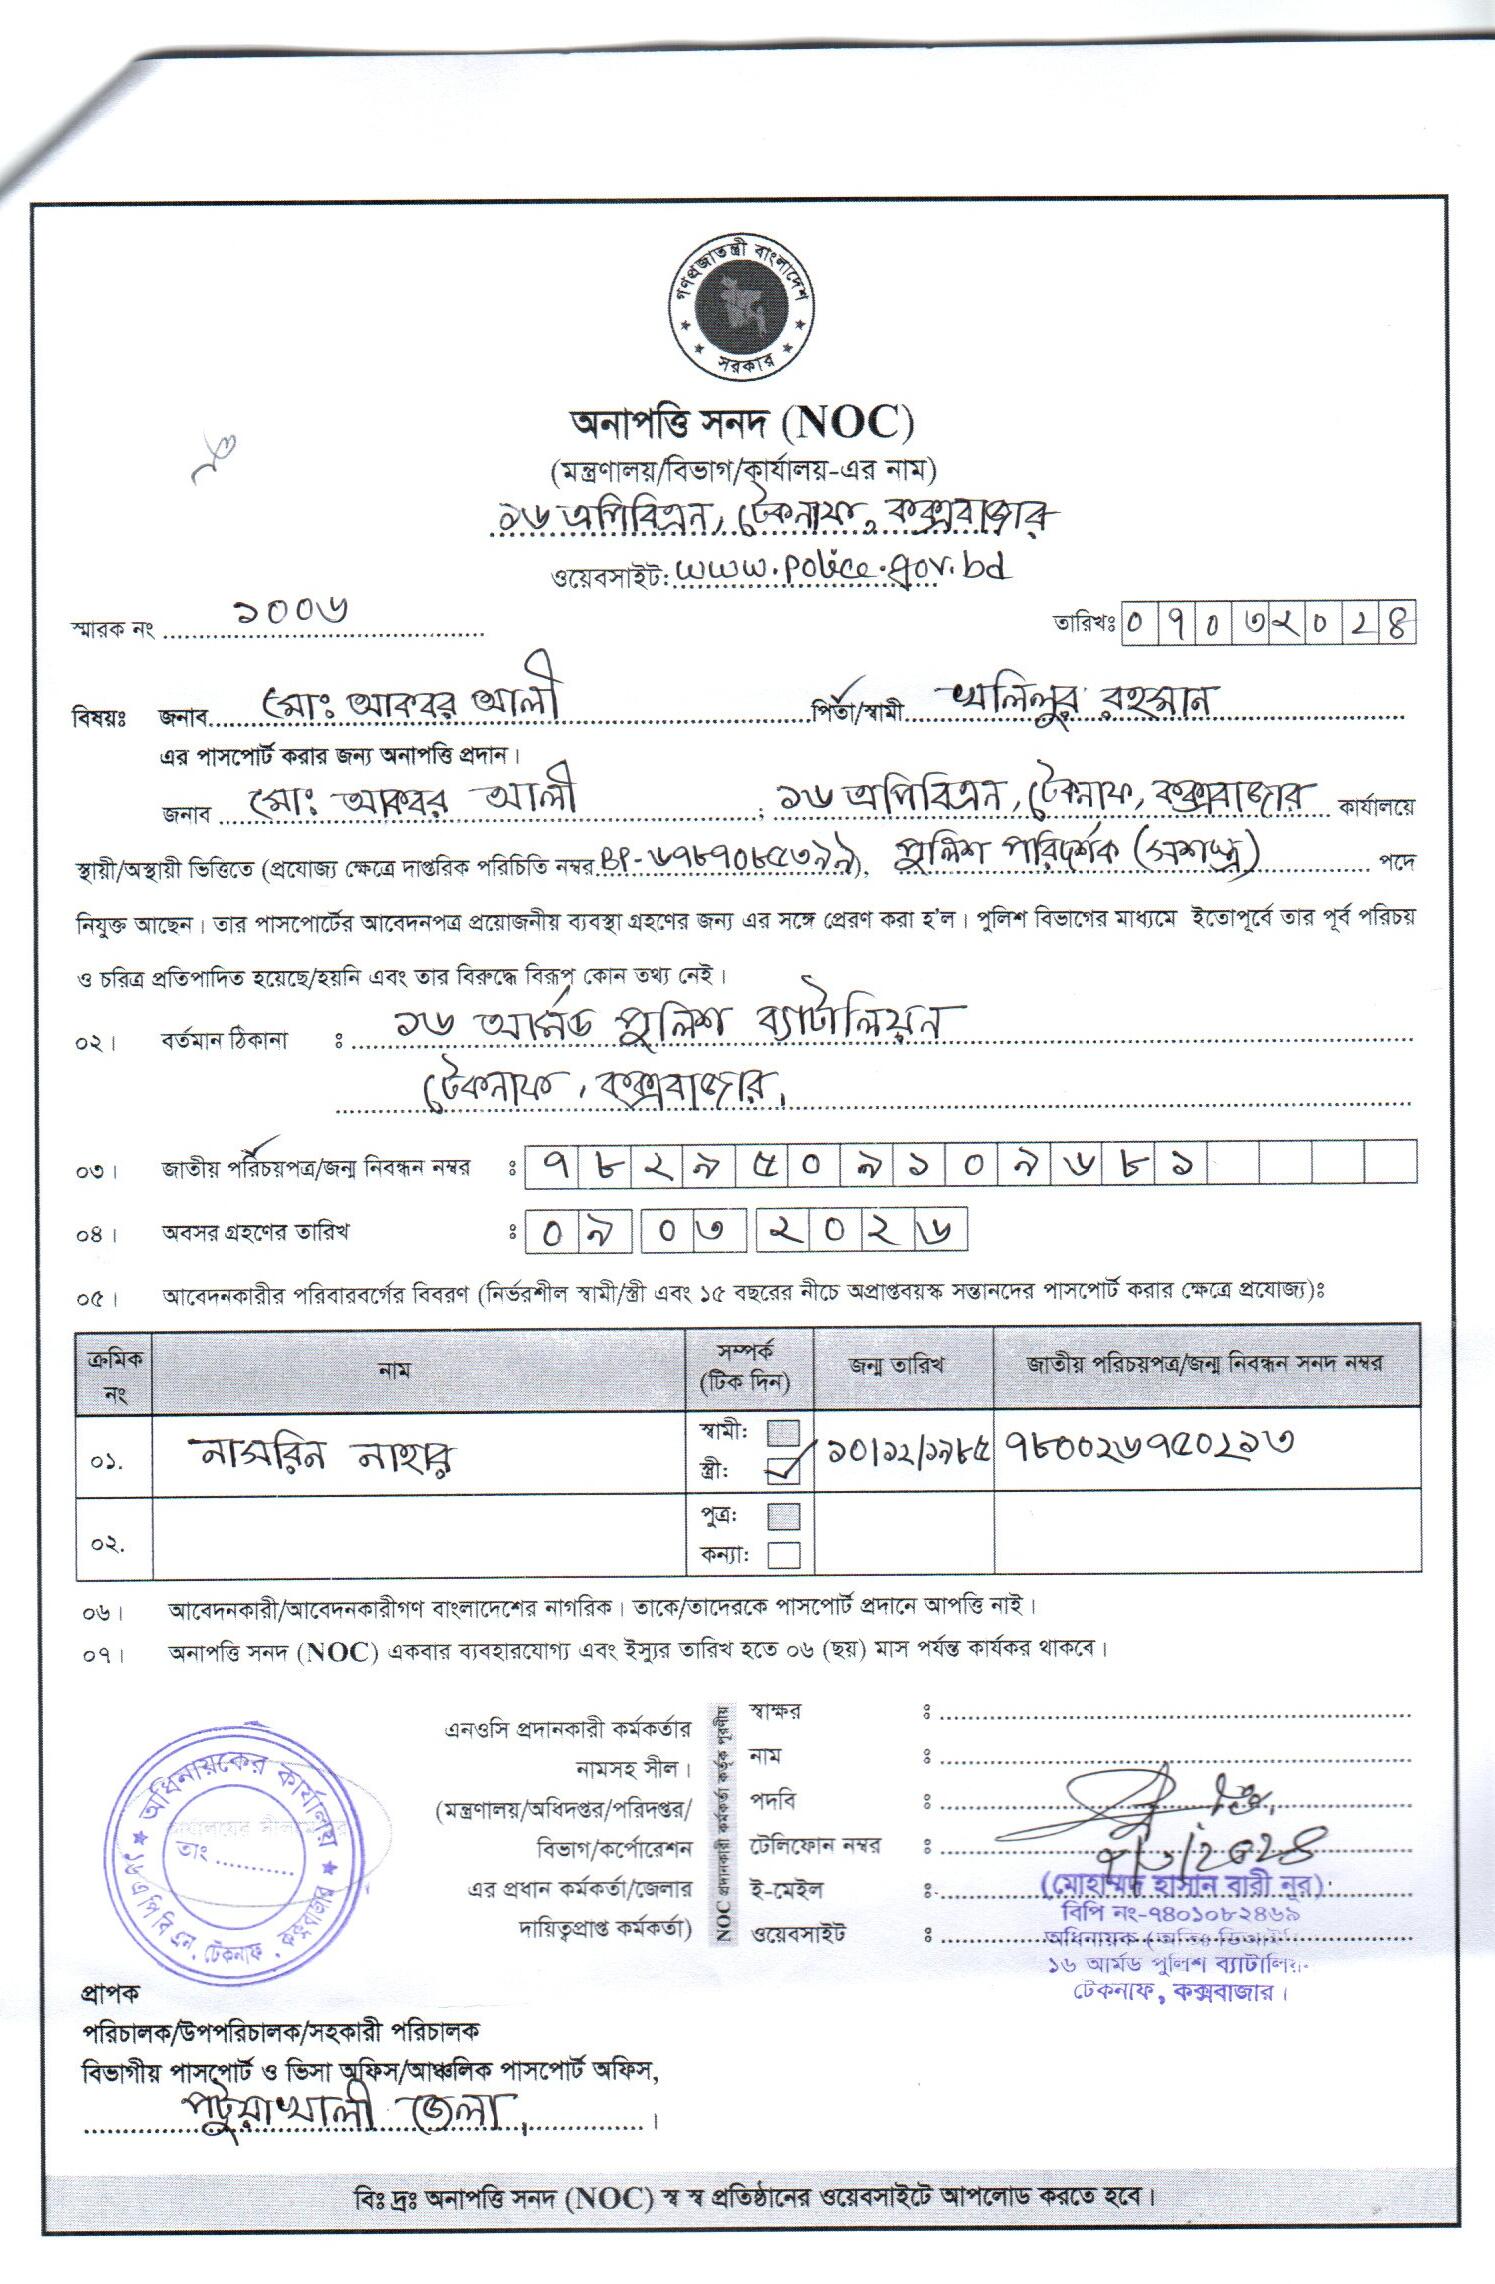 গণপ্রজাতন্ত্রী বাংলাদেশ
সরকার
অনাপত্তি সনদ (NOC)
(মন্ত্রণালয়/বিভাগ/কার্যালয়-এর নাম)
১৬ এপিবিএন, টেকনাফ, কক্সবাজার
ওয়েবসাইট: www.police.gov.bd
স্মারক নং ১০০৬
তারিখঃ ০৭০৩২০২৪
বিষয়ঃ জনাব মোঃ আকবর আলী পিতা/স্বামী খলিলুর রহমান
এর পাসপোর্ট করার জন্য অনাপত্তি প্রদান।
জনাব মোঃ আকবর আলী ; ১৬ এপিবিএন, টেকনাফ, কক্সবাজার কার্যালয়ে
স্থায়ী/অস্থায়ী ভিত্তিতে (প্রযোজ্য ক্ষেত্রে দাপ্তরিক পরিচিতি নম্বর), পুলিশ পরিদর্শক (সশস্ত্র) পদে
নিযুক্ত আছেন। তার পাসপোর্টের আবেদনপত্র প্রয়োজনীয় ব্যবস্থা গ্রহণের জন্য এর সঙ্গে প্রেরণ করা হ'ল। পুলিশ বিভাগের মাধ্যমে ইতোপূর্বে তার পূর্ব পরিচয়
ও চরিত্র প্রতিপাদিত হয়েছে/হয়নি এবং তার বিরুদ্ধে বিরূপ কোন তথ্য নেই।
০২। বর্তমান ঠিকানা ঃ ১৬ আর্মড পুলিশ ব্যাটালিয়ন
টেকনাফ, কক্সবাজার,
০৩। জাতীয় পরিচয়পত্র/জন্ম নিবন্ধন নম্বর ঃ ৭৮২৯৫০৯১০৯৬৮১
০৪। অবসর গ্রহণের তারিখ ঃ ০৯ ০৩ ২০২৬
০৫। আবেদনকারীর পরিবারবর্গের বিবরণ (নির্ভরশীল স্বামী/স্ত্রী এবং ১৫ বছরের নীচে অপ্রাপ্তবয়স্ক সন্তানদের পাসপোর্ট করার ক্ষেত্রে প্রযোজ্য)ঃ
ক্রমিক নং নাম সম্পর্ক (টিক দিন) জন্ম তারিখ জাতীয় পরিচয়পত্র/জন্ম নিবন্ধন সনদ নম্বর
০১. নাসরিন নাহার স্বামী: স্ত্রী: ১০/১২/১৯৮৫ ৭৮০০২৬৭৫০২১৩
০২. পুত্র: কন্যা:
০৬। আবেদনকারী/আবেদনকারীগণ বাংলাদেশের নাগরিক। তাকে/তাদেরকে পাসপোর্ট প্রদানে আপত্তি নাই।
০৭। অনাপত্তি সনদ (NOC) একবার ব্যবহারযোগ্য এবং ইস্যুর তারিখ হতে ০৬ (ছয়) মাস পর্যন্ত কার্যকর থাকবে।
অধিনায়কের কার্যালয়
তাং
এপিবিএন, টেকনাফ, কক্সবাজার
এনওসি প্রদানকারী কর্মকর্তার
নামসহ সীল।
(মন্ত্রণালয়/অধিদপ্তর/পরিদপ্তর/
বিভাগ/কর্পোরেশন
এর প্রধান কর্মকর্তা/জেলার
দায়িত্বপ্রাপ্ত কর্মকর্তা)
NOC প্রদানকারী কর্মকর্তা কর্তৃক পূরণীয়
স্বাক্ষর ঃ
নাম ঃ
পদবি ঃ
টেলিফোন নম্বর ঃ ৭/৩/২০২৪
ই-মেইল ঃ
ওয়েবসাইট ঃ
(মোহাম্মদ হাসান বারী নূর)
বিপি নং-৭৪০১০৮২৪৬৯
অধিনায়ক
১৬ আর্মড পুলিশ
টেকনাফ, কক্সবাজার।
প্রাপক
পরিচালক/উপপরিচালক/সহকারী পরিচালক
বিভাগীয় পাসপোর্ট ও ভিসা অফিস/আঞ্চলিক পাসপোর্ট অফিস,
পটুয়াখালী জেলা,।
বিঃ দ্রঃ অনাপত্তি সনদ (NOC) স্ব স্ব প্রতিষ্ঠানের ওয়েবসাইটে আপলোড করতে হবে।